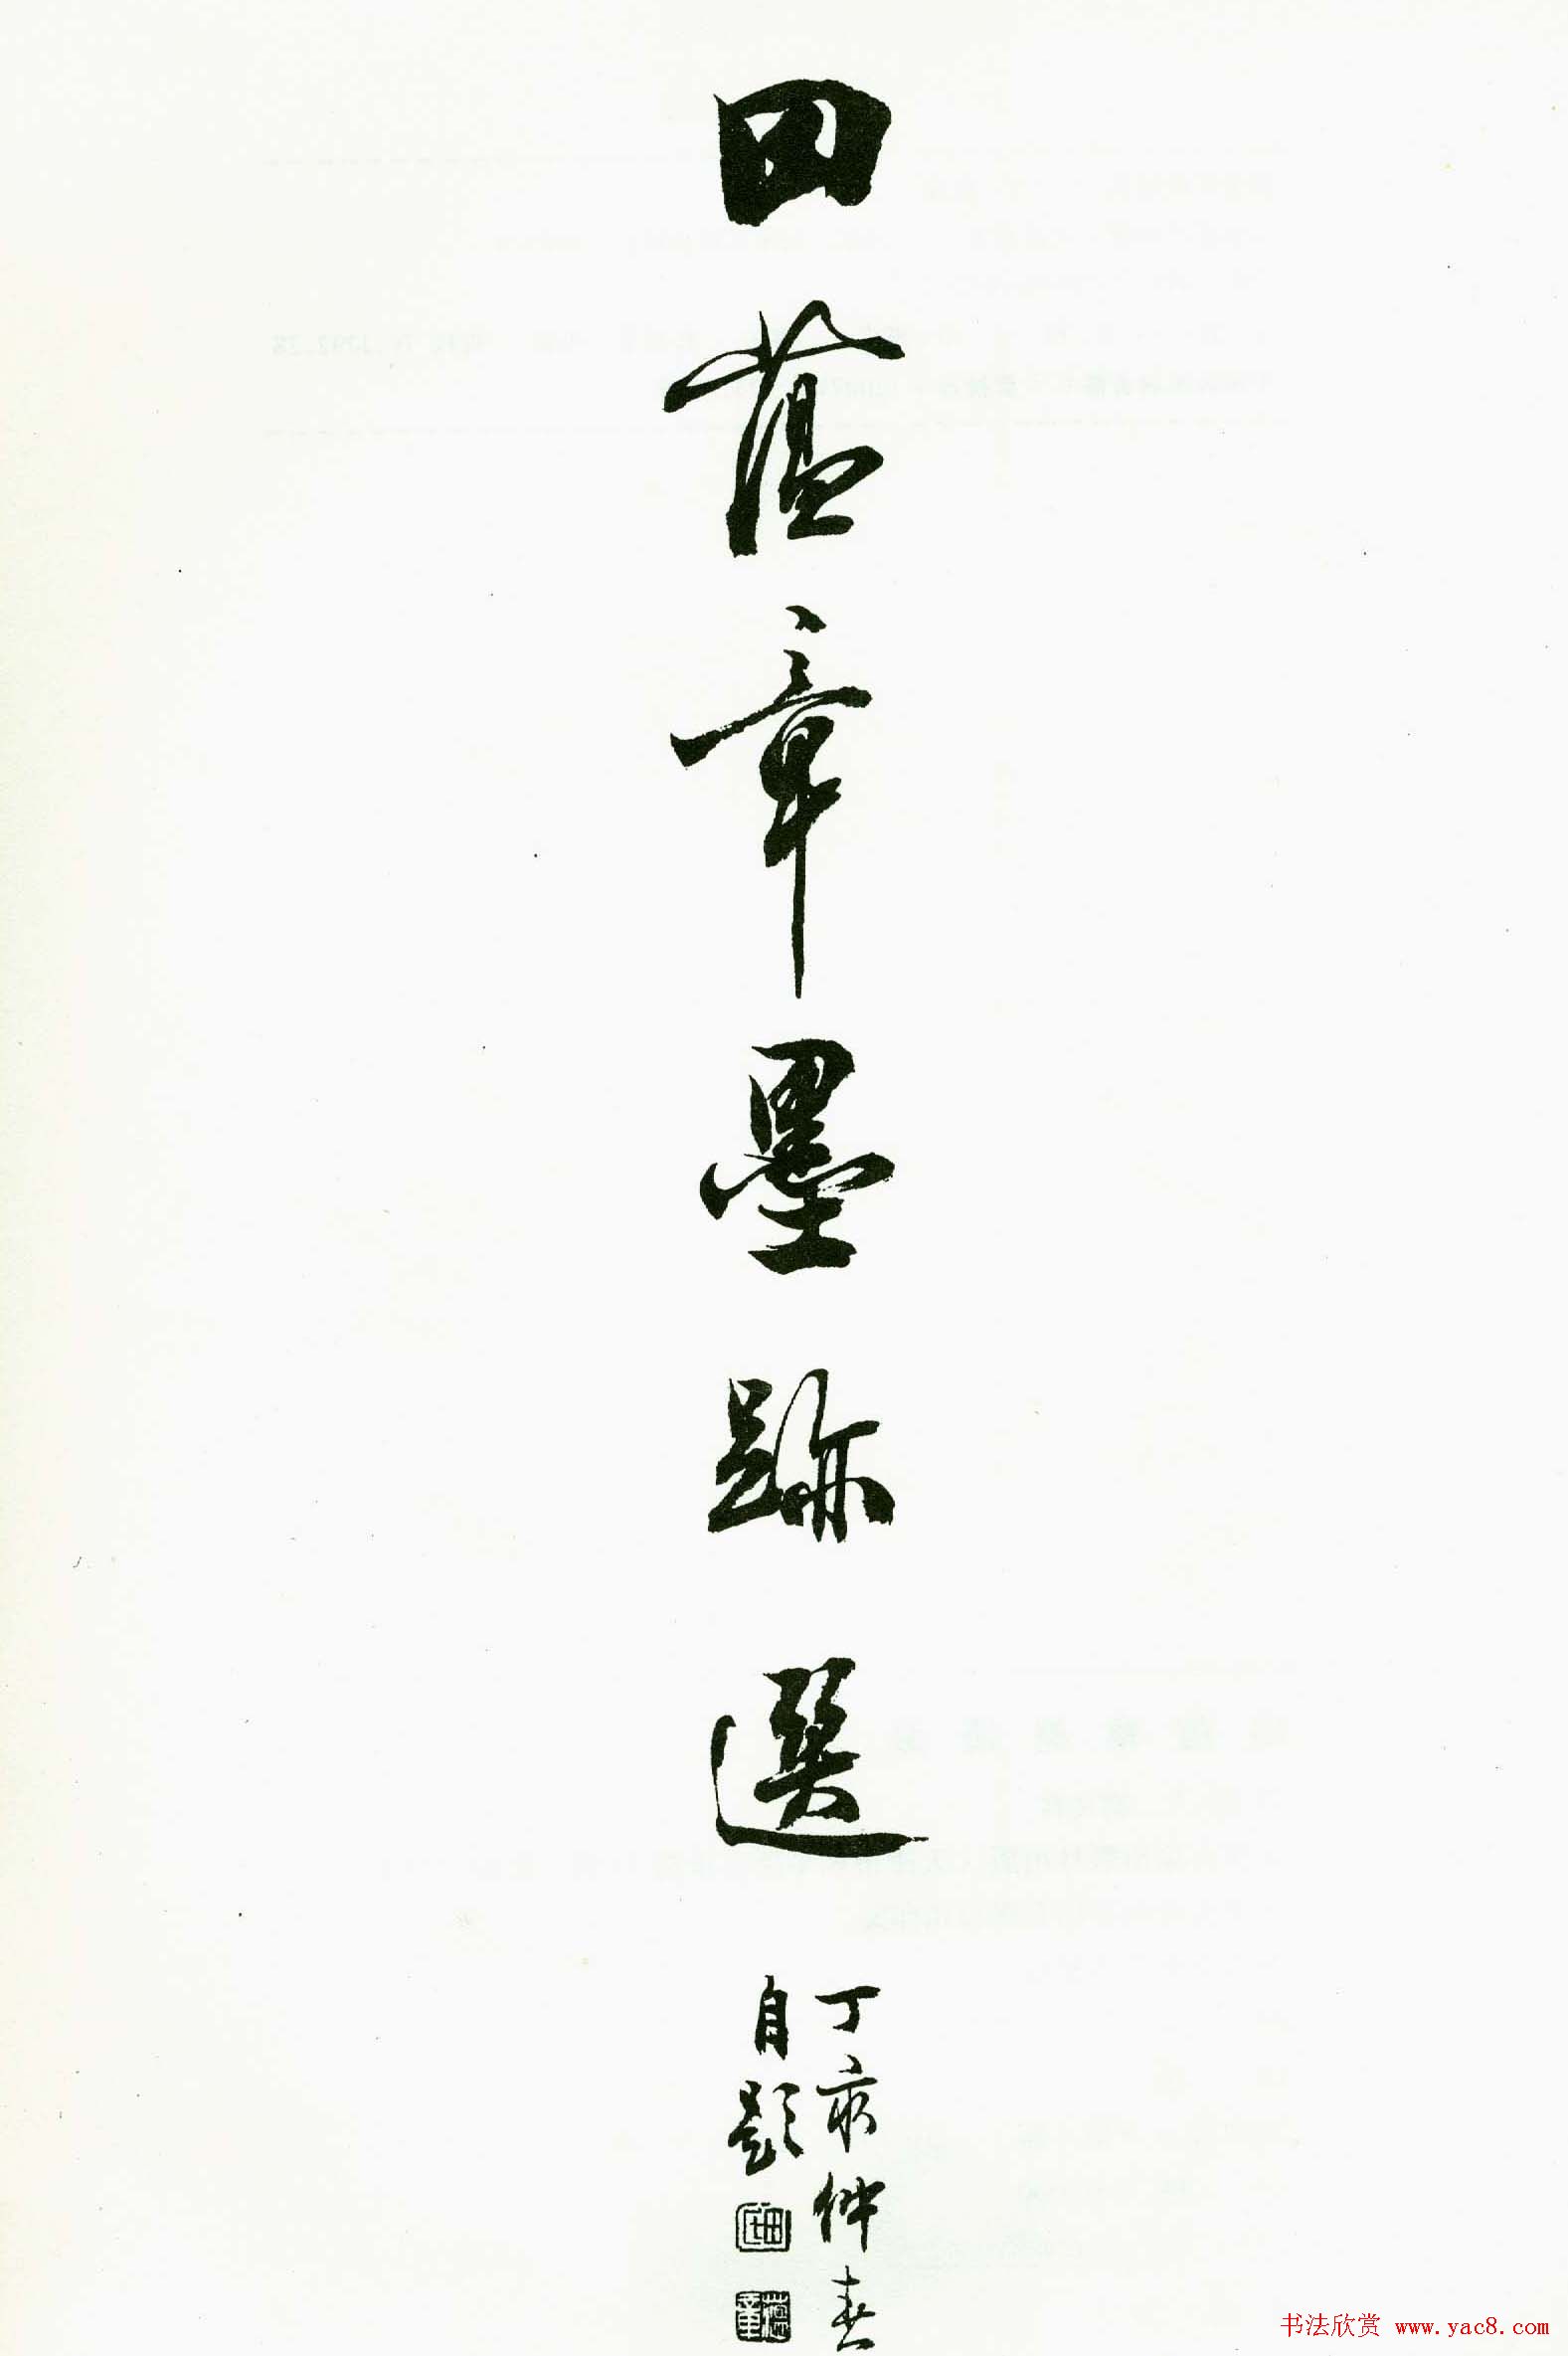 田蕴章墨跡選
丁亥仲春
自題
田氏
蕴章
书法欣赏 www.yac8.com